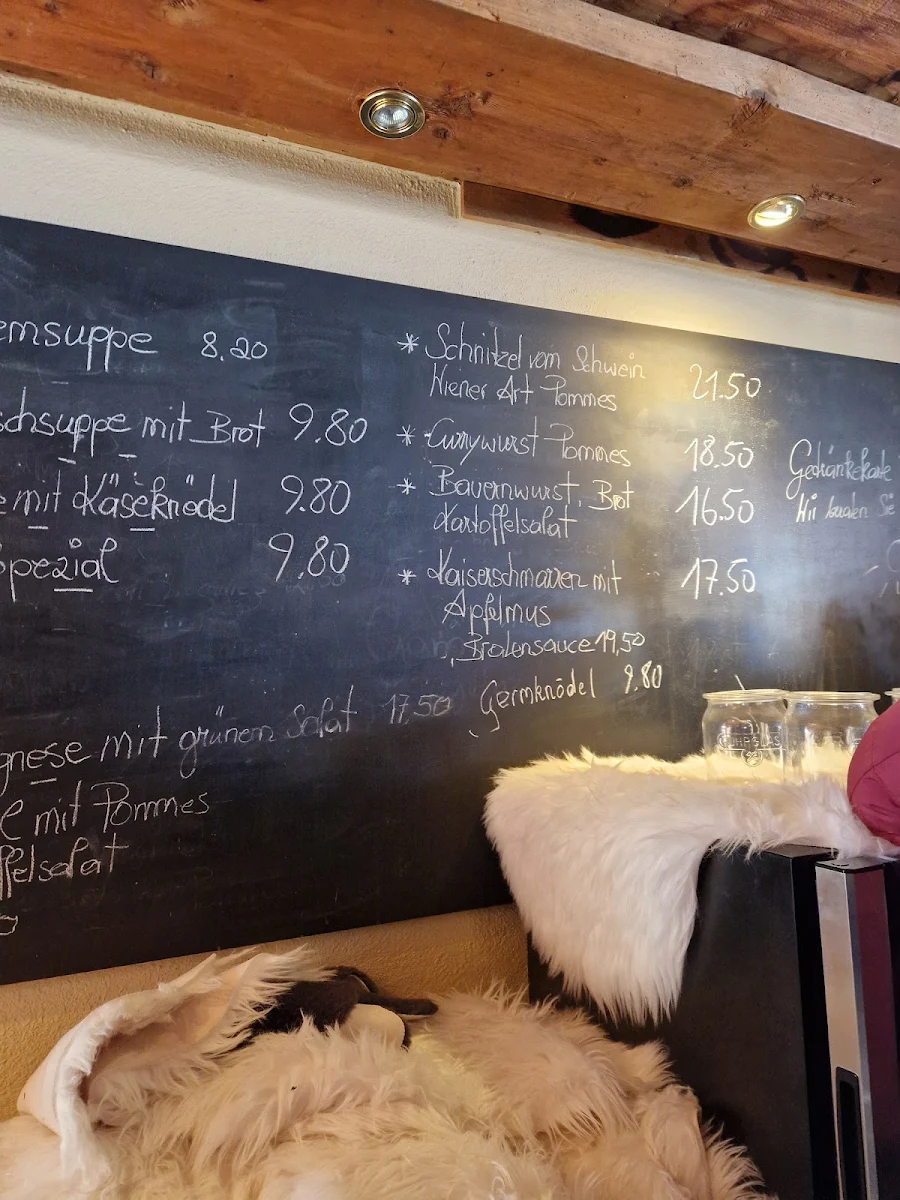 emsuppe 8.20
schsuppe mit Brot 9.80
e mit Käseknödel 9.80
Spezial 9.80
gnese mit grünem Salat 17.50
e mit Pommes
ffelsalat
* Schnitzel vom Schwein
Wiener Art Pommes 21.50
* Currywurst Pommes 18.50
* Bauernwurst, Brot
Kartoffelsalat 16.50
* Kaiserschmarren mit 17.50
Apfelmus
Bratensauce 19,50
Germknödel 9.80
Getränkekarte
Wir Sie